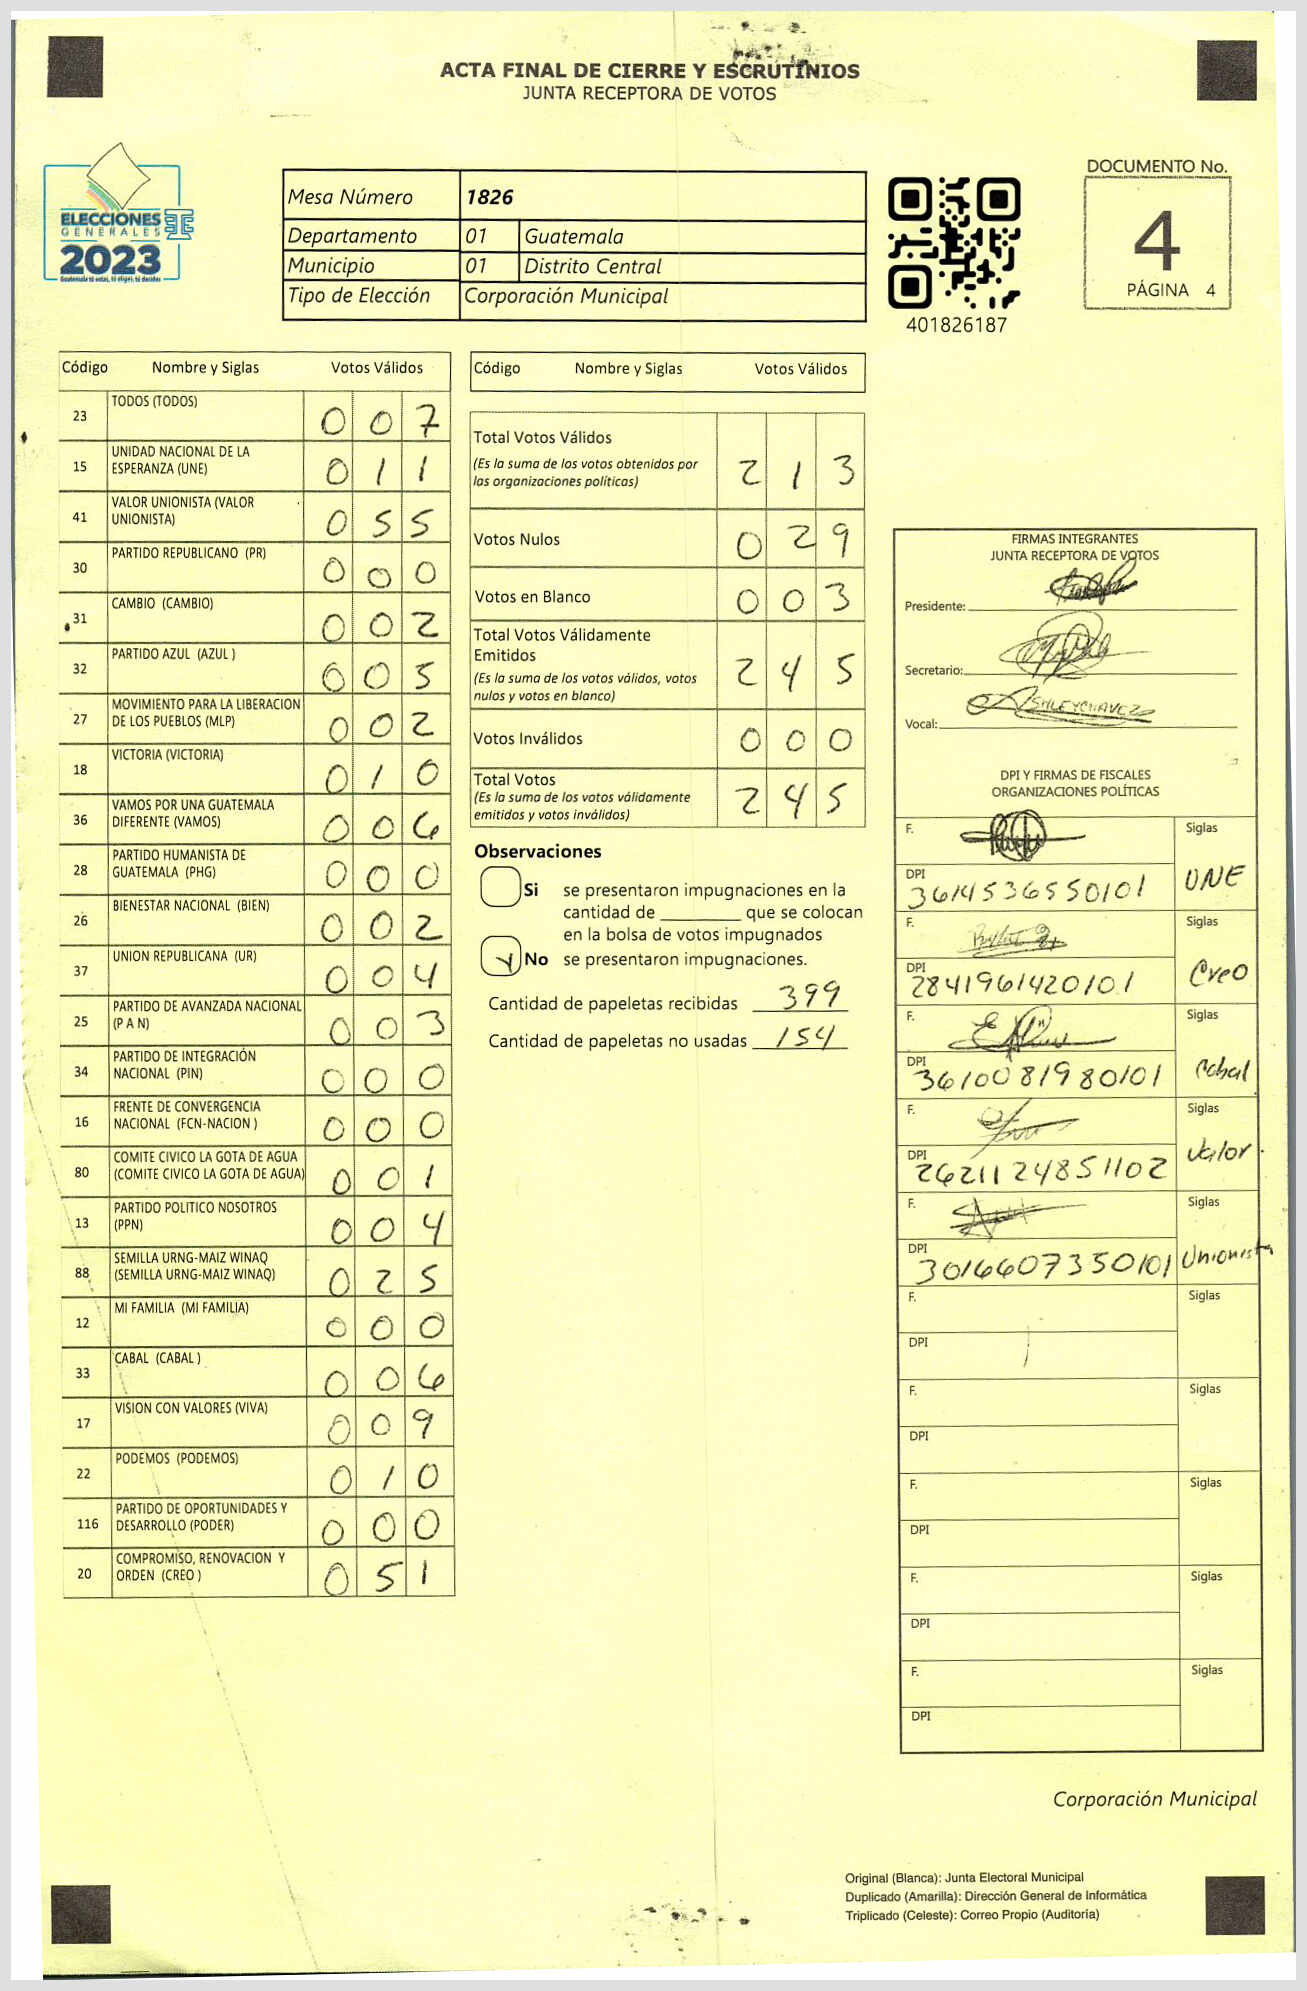 ACTA FINAL DE CIERRE Y ESCRUTINIOS
JUNTA RECEPTORA DE VOTOS
ELECCIONES
GENERALES
2023
Mesa Número 1826
Departamento 01 Guatemala
Municipio 01 Distrito Central
Tipo de Elección Corporación Municipal
401826187
DOCUMENTO No.
4
PÁGINA 4
Código Nombre y Siglas Votos Válidos
23 TODOS (TODOS) 0 0 7
15 UNIDAD NACIONAL DE LA
ESPERANZA (UNE) 0 1 1
41 VALOR UNIONISTA (VALOR
UNIONISTA) 0 5 5
30 PARTIDO REPUBLICANO (PR) 0 0 0
31 CAMBIO (CAMBIO) 0 0 2
32 PARTIDO AZUL (AZUL ) 0 0 5
27 MOVIMIENTO PARA LA LIBERACION
DE LOS PUEBLOS (MLP) 0 0 2
18 VICTORIA (VICTORIA) 0 1 0
36 VAMOS POR UNA GUATEMALA
DIFERENTE (VAMOS) 0 0 6
28 PARTIDO HUMANISTA DE
GUATEMALA (PHG) 0 0 0
26 BIENESTAR NACIONAL (BIEN) 0 0 2
37 UNION REPUBLICANA (UR) 0 0 4
25 PARTIDO DE AVANZADA NACIONAL
(P A N) 0 0 3
34 PARTIDO DE INTEGRACIÓN
NACIONAL (PIN) 0 0 0
16 FRENTE DE CONVERGENCIA
NACIONAL (FCN-NACION ) 0 0 0
80 COMITE CIVICO LA GOTA DE AGUA
(COMITE CIVICO LA GOTA DE AGUA) 0 0 1
13 PARTIDO POLITICO NOSOTROS
(PPN) 0 0 4
88 SEMILLA URNG-MAIZ WINAQ
(SEMILLA URNG-MAIZ WINAQ) 0 2 5
12 MI FAMILIA (MI FAMILIA) 0 0 0
33 CABAL (CABAL ) 0 0 6
17 VISION CON VALORES (VIVA) 0 0 9
22 PODEMOS (PODEMOS) 0 1 0
116 PARTIDO DE OPORTUNIDADES Y
DESARROLLO (PODER) 0 0 0
20 COMPROMISO, RENOVACION Y
ORDEN (CREO ) 0 5 1
Código Nombre y Siglas Votos Válidos
Total Votos Válidos
(Es la suma de los votos obtenidos por
las organizaciones políticas) 2 1 3
Votos Nulos 0 2 9
Votos en Blanco 0 0 3
Total Votos Válidamente
Emitidos
(Es la suma de los votos válidos, votos
nulos y votos en blanco) 2 4 5
Votos Inválidos 0 0 0
Total Votos
(Es la suma de los votos válidamente
emitidos y votos inválidos) 2 4 5
Observaciones
Si se presentaron impugnaciones en la
cantidad de ________ que se colocan
en la bolsa de votos impugnados
No se presentaron impugnaciones.
Cantidad de papeletas recibidas 399
Cantidad de papeletas no usadas 154
FIRMAS INTEGRANTES
JUNTA RECEPTORA DE VOTOS
Presidente:
Secretario:
Vocal: ASHLEYCHAVEZ
DPI Y FIRMAS DE FISCALES
ORGANIZACIONES POLÍTICAS
F. Siglas
DPI 3614536550101 UNE
F. Siglas
DPI 2841961420101 Creo
F. Siglas
DPI 3610081980101 Cabal
F. Siglas
DPI 2621124851102 Valor
F. Siglas
DPI 3016607350101 Unionista
F. Siglas
DPI
F. Siglas
DPI
F. Siglas
DPI
F. Siglas
DPI
F. Siglas
DPI
Corporación Municipal
Original (Blanca): Junta Electoral Municipal
Duplicado (Amarilla): Dirección General de Informática
Triplicado (Celeste): Correo Propio (Auditoría)